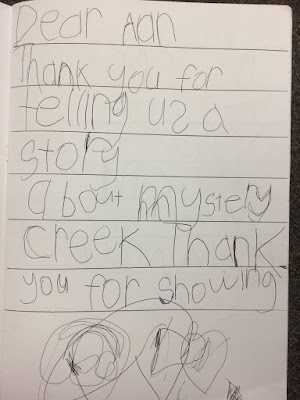 Dear Aan
Thank you for
telling us a
story
about mystery
creek Thank
you for showing